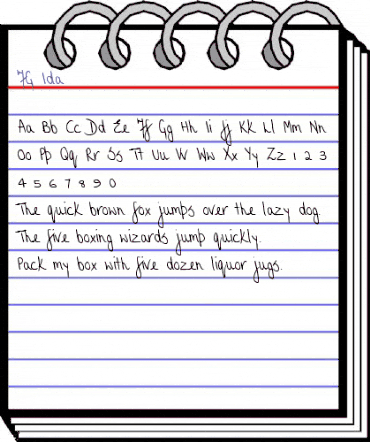 FG Ida
Aa Bb Cc Dd Ee Ff Gg Hh Ii Jj Kk Ll Mm Nn
Oo Pp Qq Rr Ss Tt Uu Vv Ww Xx Yy Zz 1 2 3
4 5 6 7 8 9 0
The quick brown fox jumps over the lazy dog.
The five boxing wizards jump quickly.
Pack my box with five dozen liquor jugs.